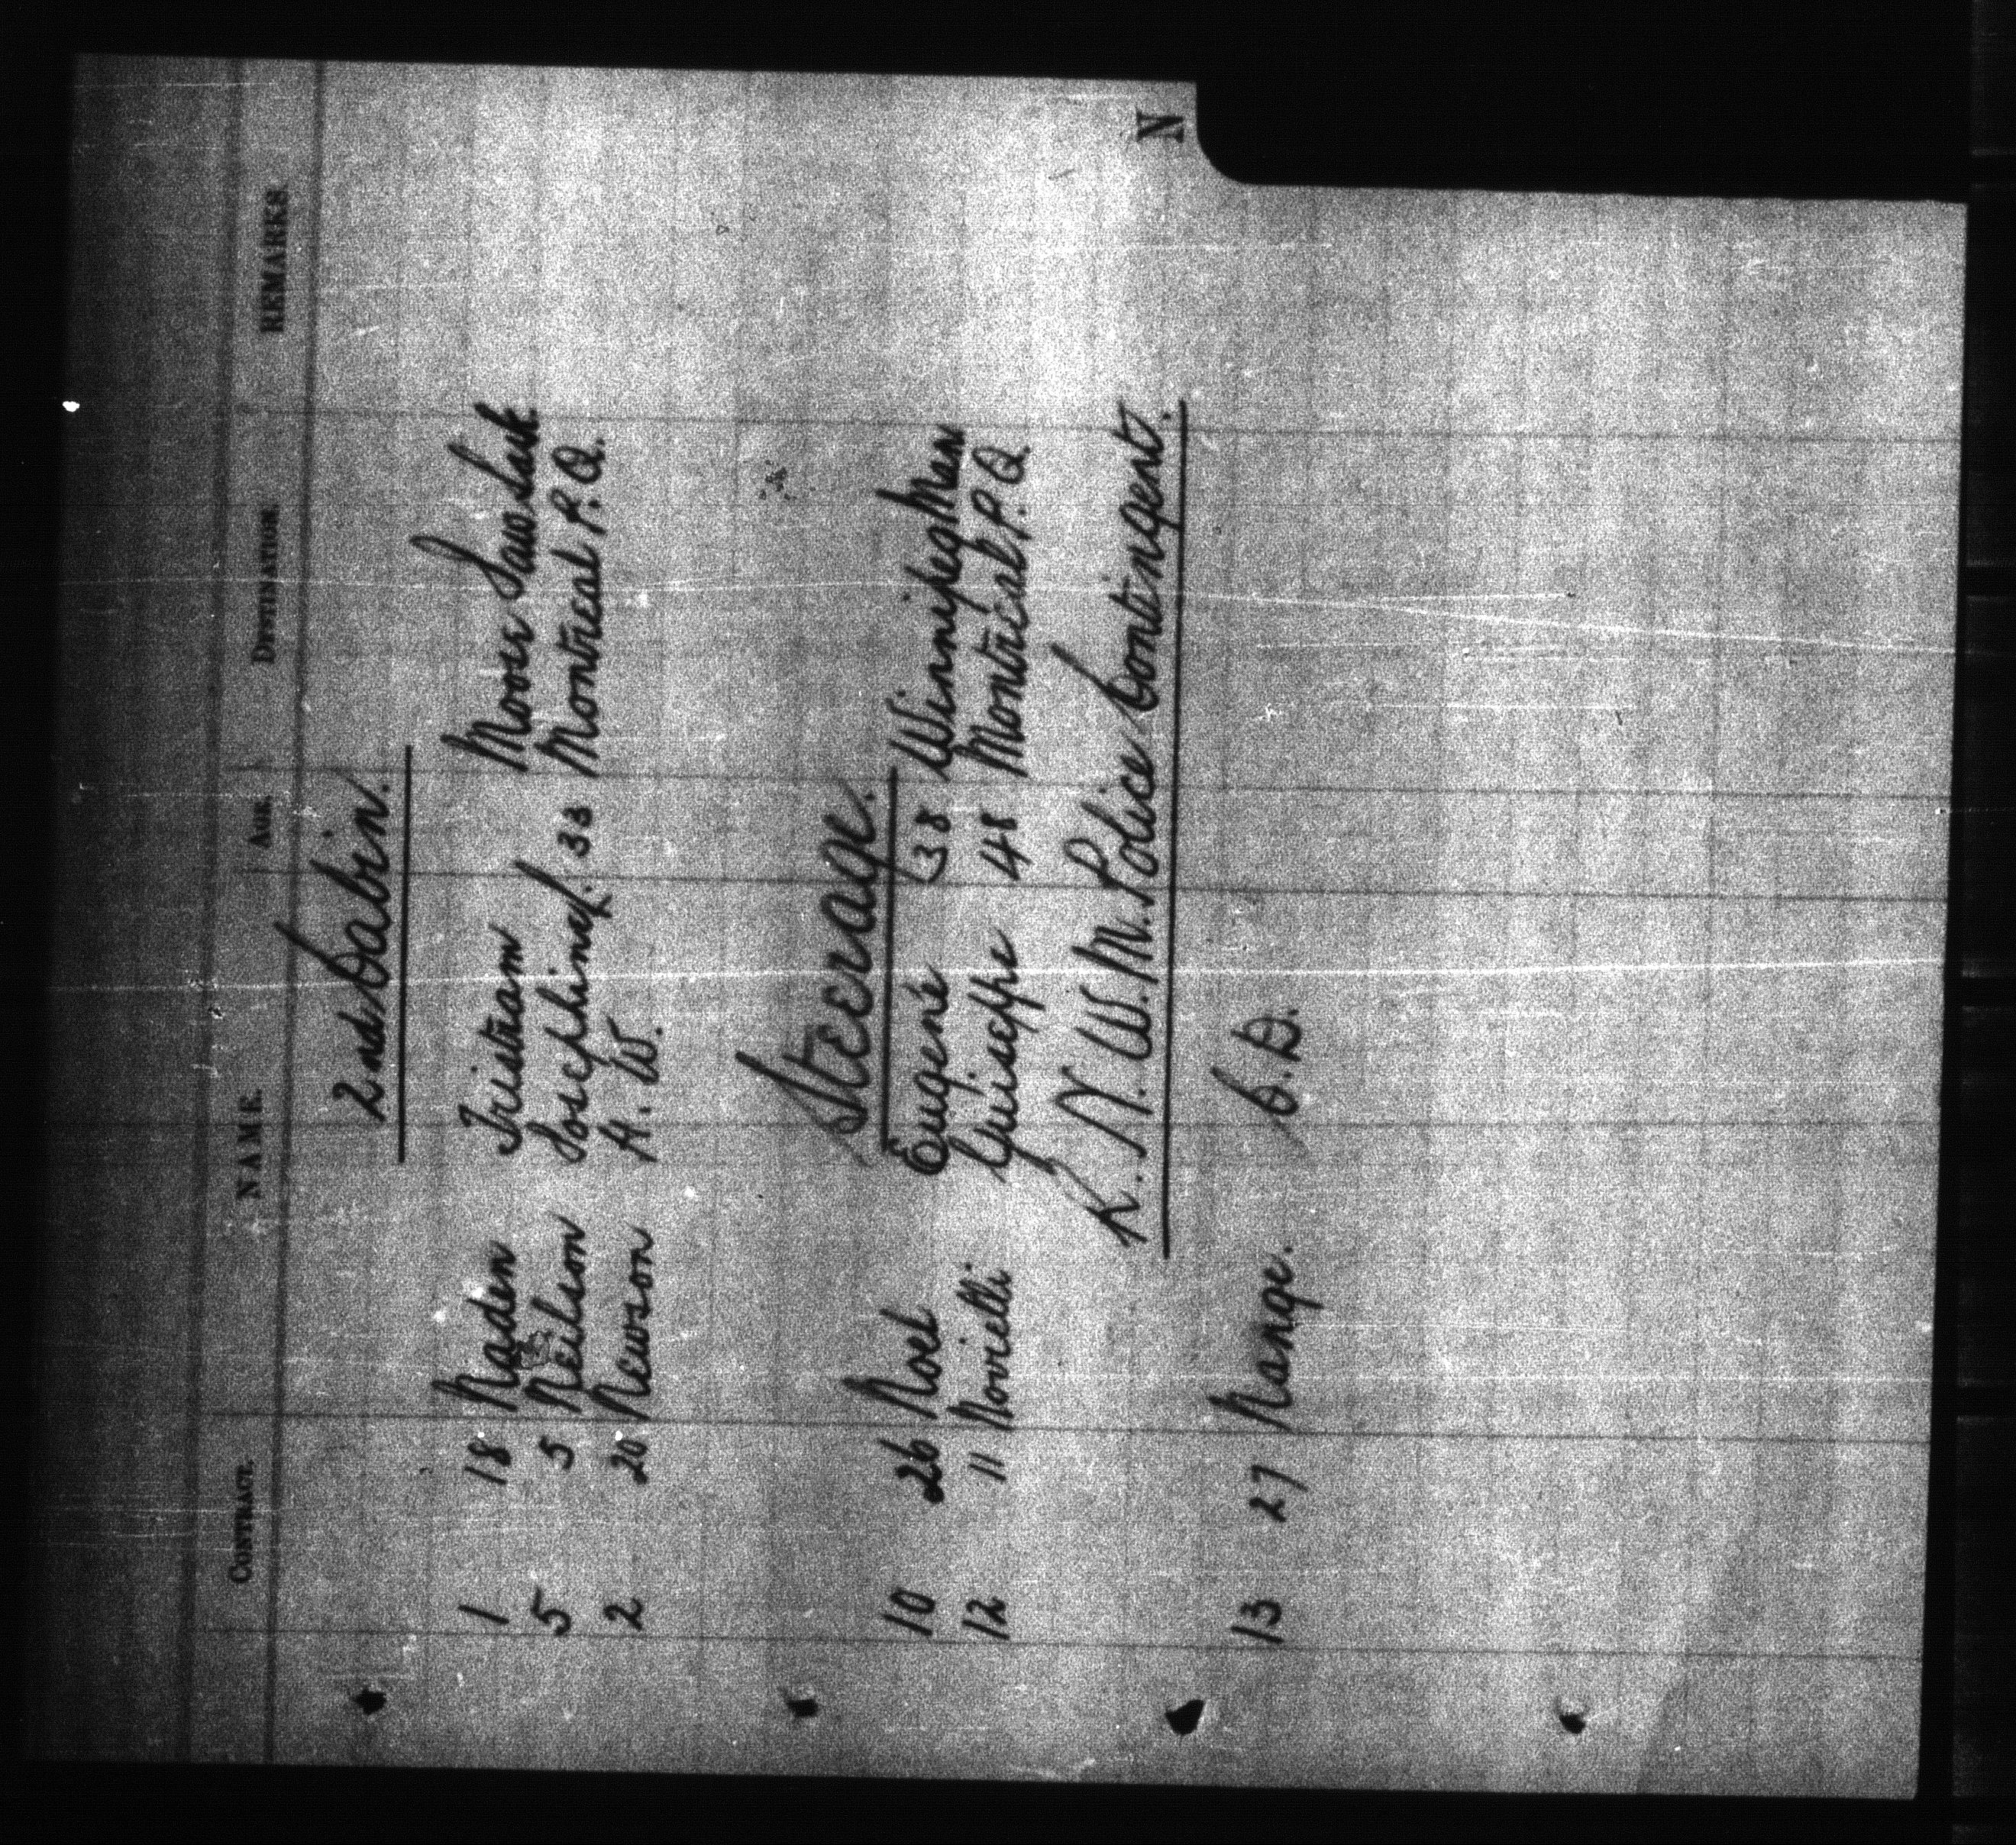 N
CONTRACT. NAME. AGE. DESTINATION. REMARKS
2nd Cabin.
1 18 Naden Tristram Moose Jaw Sask
5 5 Neilson Josephine f. 33 Montreal P.Q.
2 20 Newson H. W.
Steerage.
10 26 Noel Eugené 38 Winnipeg Man
12 11 Novielli Guiseppe 48 Montreal P.Q.
R. N. W. M. Police Contingent.
13 27 Nange. C. D.